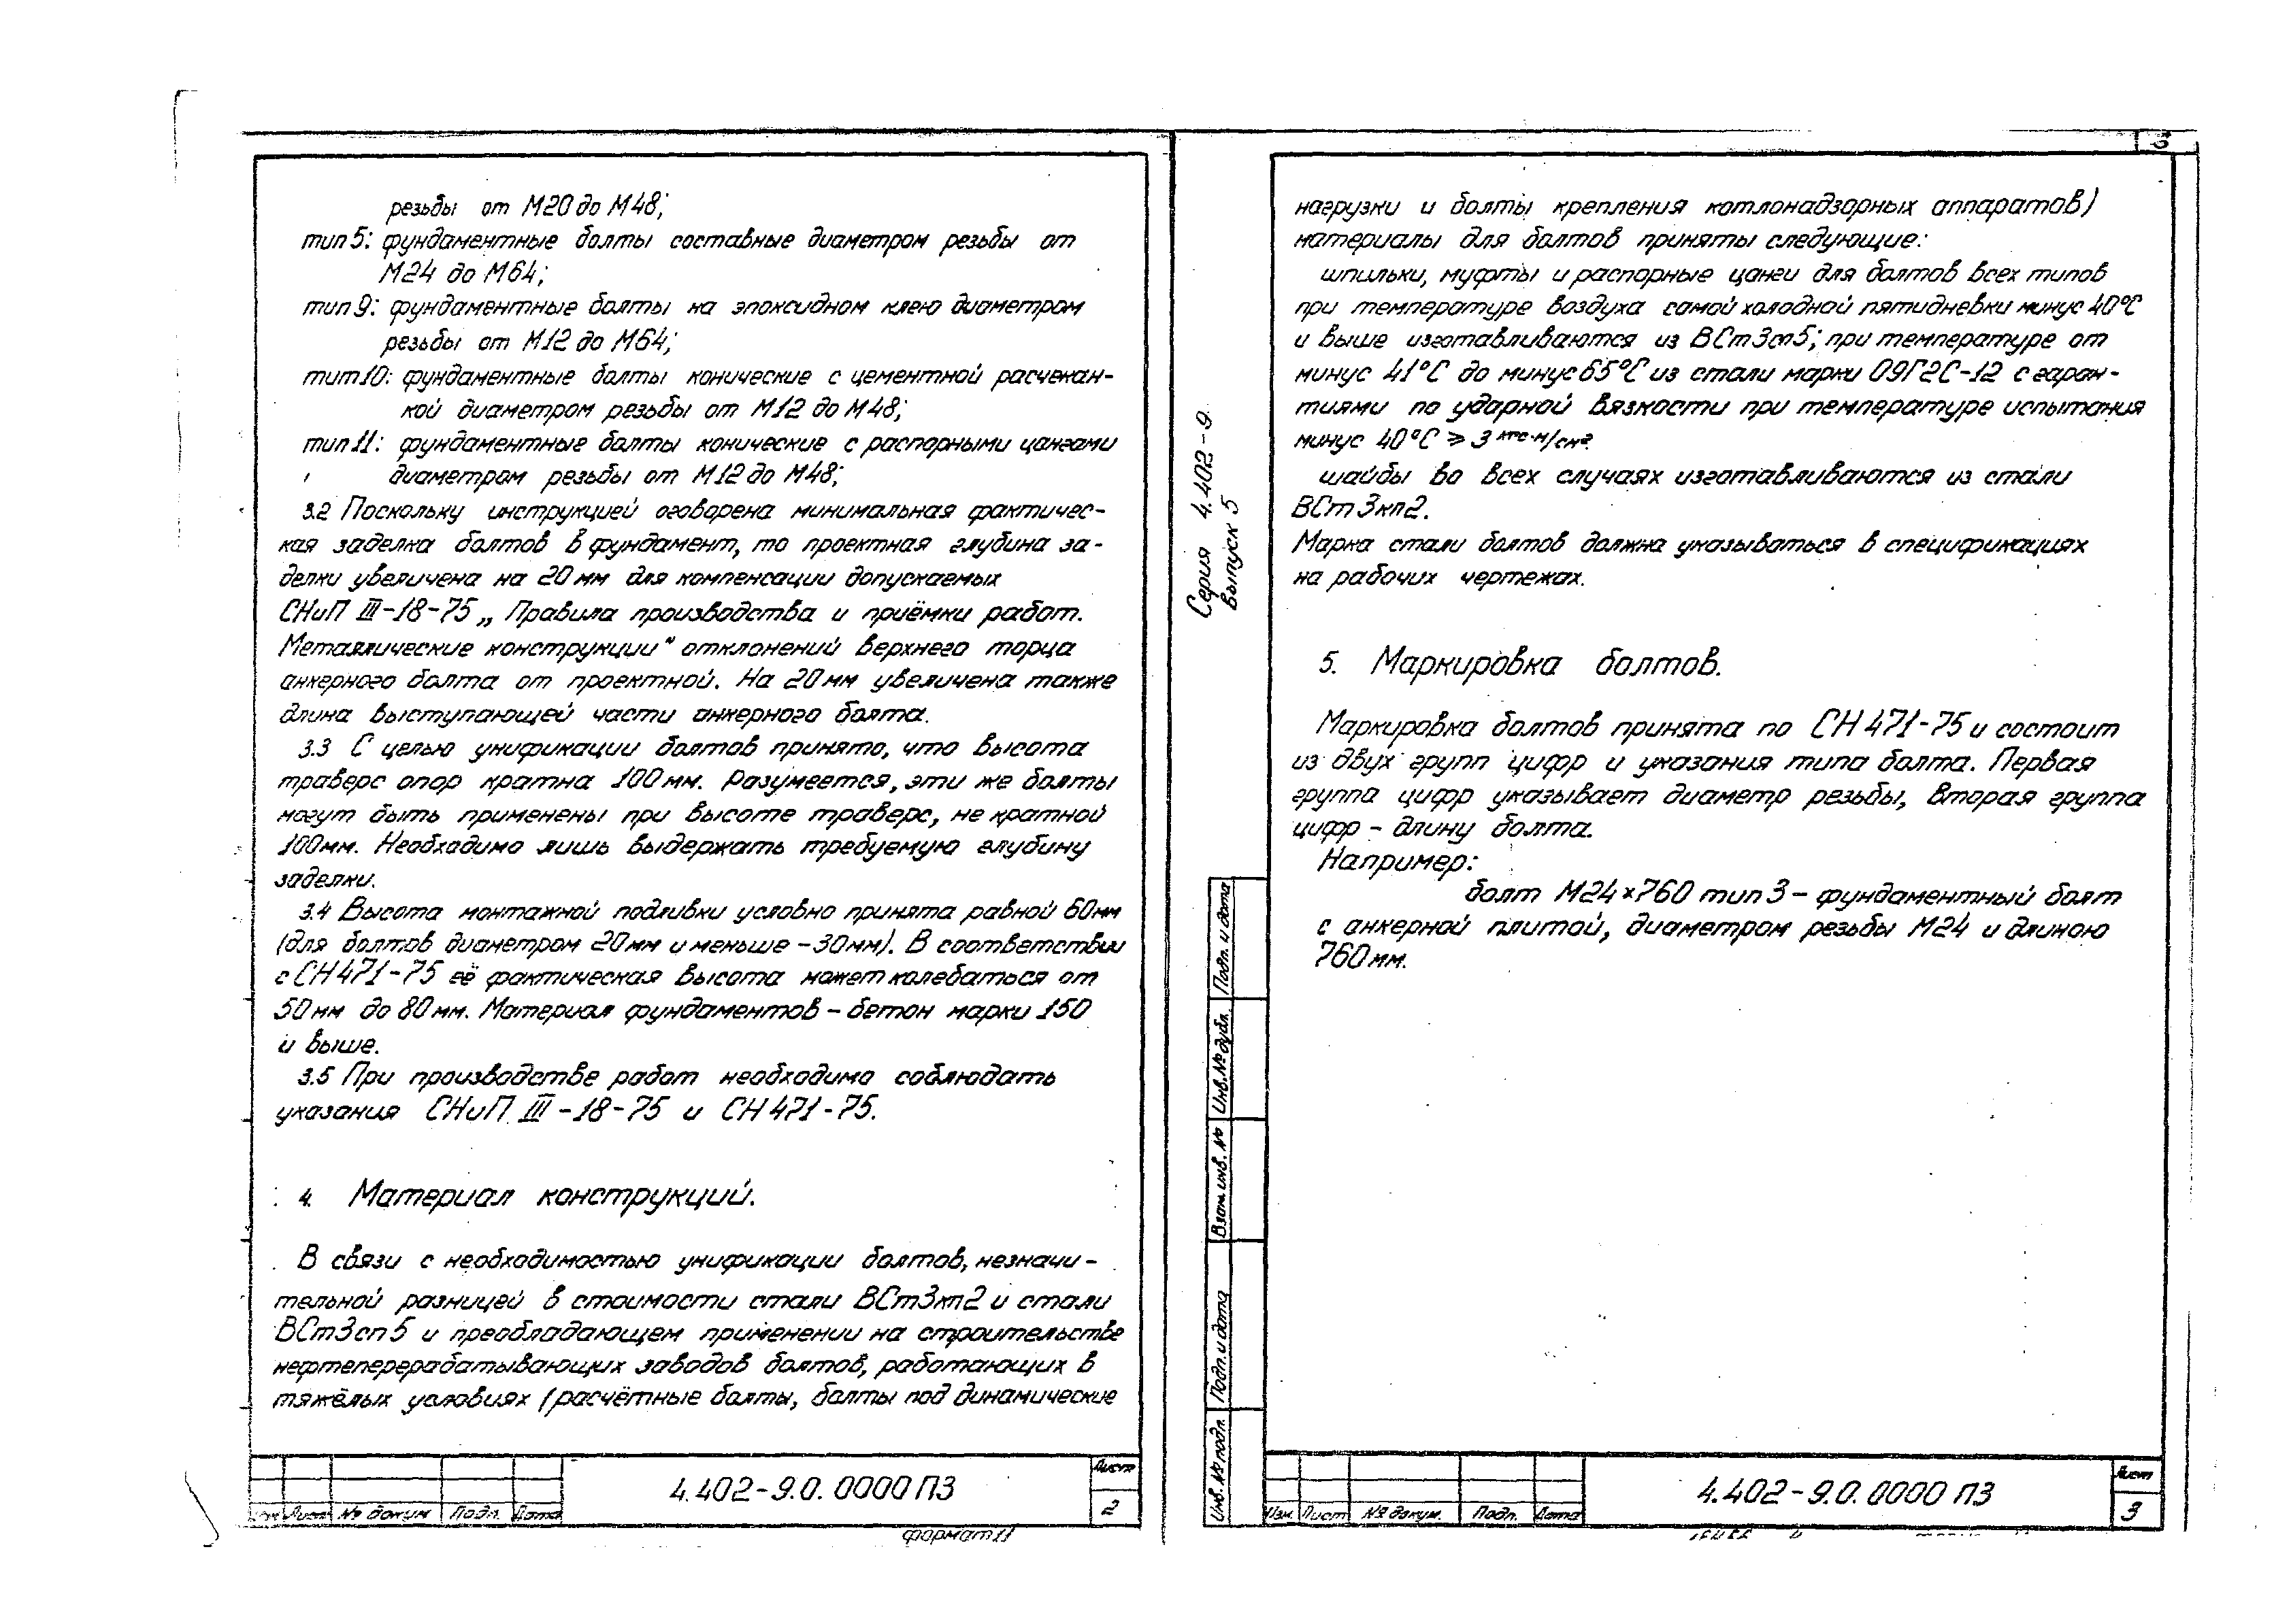 резьбы от М20 до М48;
тип 5: фундаментные болты составные диаметром резьбы от
М24 до М64;
тип 9: фундаментные болты на эпоксидном клею диаметром
резьбы от М12 до М64;
тип 10: фундаментные болты конические с цементной расчекан-
кой диаметром резьбы от М12 до М48;
тип 11: фундаментные болты конические с распорными цангами
диаметром резьбы от М12 до М48;
3.2 Поскольку инструкцией оговорена минимальная фактичес-
кая заделка болтов в фундамент, то проектная глубина за-
делки увеличена на 20 мм для компенсации допускаемых
СНиП III-18-75 „Правила производства и приёмки работ.
Металлические конструкции" отклонений верхнего торца
анкерного болта от проектной. На 20 мм увеличена также
длина выступающей части анкерного болта.
3.3 С целью унификации болтов принято, что высота
траверс опор кратна 100 мм. Разумеется, эти же болты
могут быть применены при высоте траверс, не кратной
100 мм. Необходимо лишь выдержать требуемую глубину
заделки.
3.4 Высота монтажной подливки условно принята равной 60 мм
(для болтов диаметром 20 мм и меньше - 30 мм). В соответствии
с СН 471-75 её фактическая высота может колебаться от
50 мм до 80 мм. Материал фундаментов - бетон марки 150
и выше.
3.5 При производстве работ необходимо соблюдать
указания СНиП III-18-75 и СН 471-75.
4. Материал конструкций.
В связи с необходимостью унификации болтов, незначи-
тельной разницей в стоимости стали ВСт3кп2 и стали
ВСт3сп5 и преобладающем применении на строительстве
нефтеперерабатывающих заводов болтов, работающих в
тяжёлых условиях (расчётные болты, болты под динамические
4.402-9.0.0000 ПЗ
Лист
2
Изм Лист № докум Подп. Дата
формат 11
3
нагрузки и болты крепления котлонадзорных аппаратов)
материалы для болтов приняты следующие:
шпильки, муфты и распорные цанги для болтов всех типов
при температуре воздуха самой холодной пятидневки минус 40°С
и выше изготавливаются из ВСт3сп5; при температуре от
минус 41°С до минус 65°С из стали марки 09Г2С-12 с гаран-
тиями по ударной вязкости при температуре испытания
минус 40°С ⩾ 3 кгс·м/см².
шайбы во всех случаях изготавливаются из стали
ВСт3кп2.
Марка стали болтов должна указываться в спецификациях
на рабочих чертежах.
5. Маркировка болтов.
Маркировка болтов принята по СН 471-75 и состоит
из двух групп цифр и указания типа болта. Первая
группа цифр указывает диаметр резьбы, вторая группа
цифр - длину болта.
Например:
болт М24×760 тип 3 - фундаментный болт
с анкерной плитой, диаметром резьбы М24 и длиною
760 мм.
Серия 4.402-9
Выпуск 5
Подп. и дата
Инв. № дубл.
Взам. инв. №
Подп. и дата
Инв. № подл.
4.402-9.0.0000 ПЗ
Лист
3
Изм Лист № докум. Подп. Дата